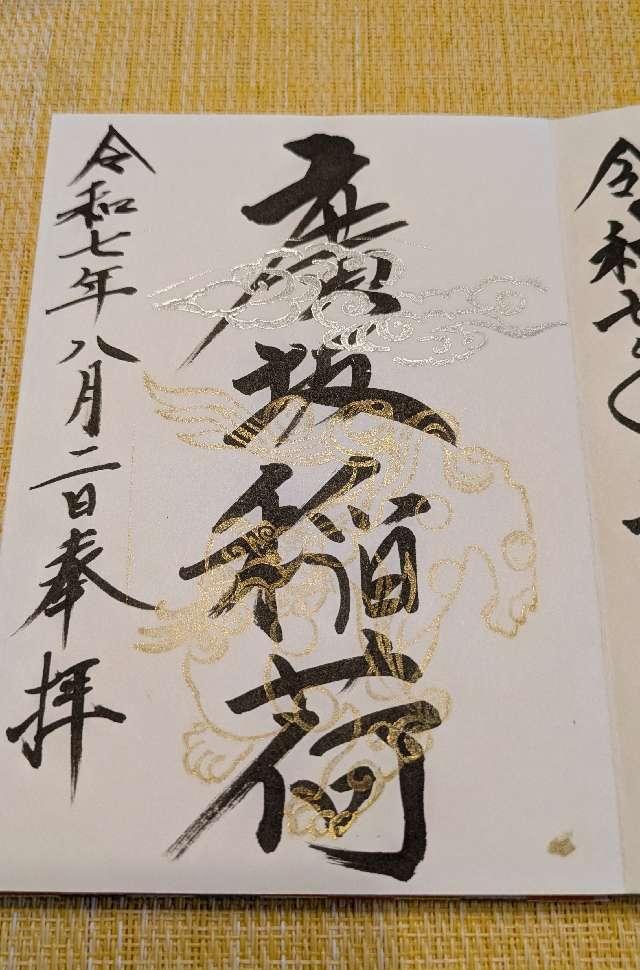 令和七
廣坂稲荷
令和七年八月二日奉拝